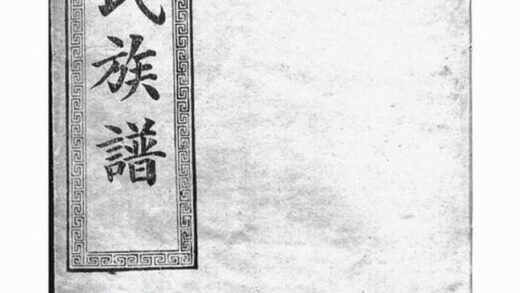 氏族譜